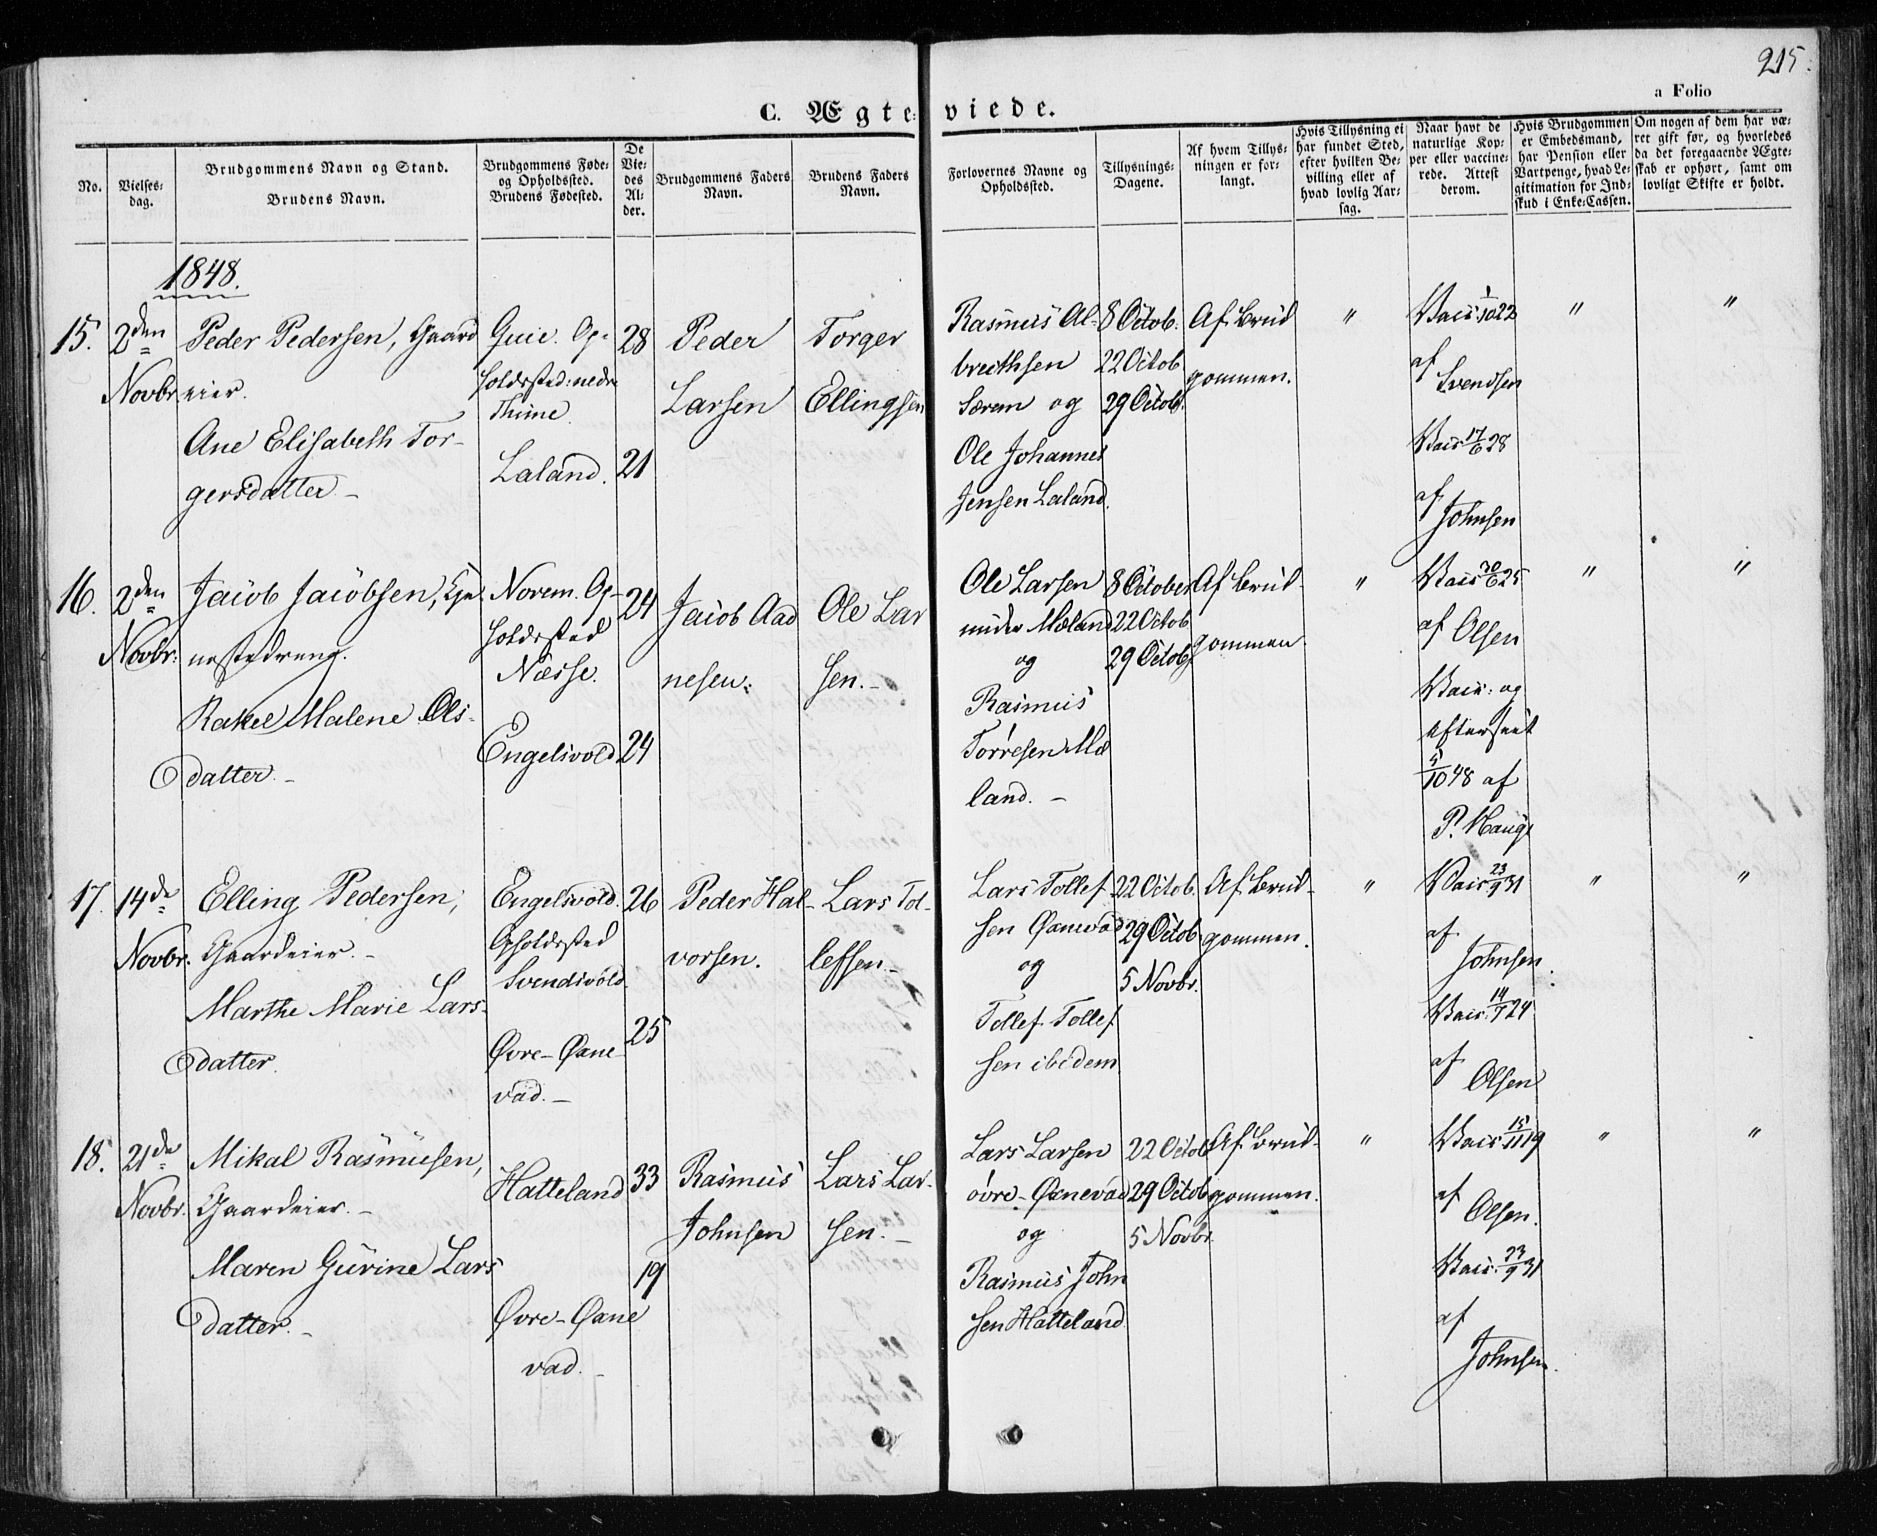 215.
a Folio
C. Ægteviede.
No.
Vielses-dag.
Brudgommens Navn og Stand.
Brudens Navn.
Brudgommens Føde- og Opholdssted.
Brudens Fødested.
De Viedes Alder.
Brudgommens Faders Navn.
Brudens Faders Navn.
Forlovernes Navne og Opholdssted.
Tillysnings-Dagene.
Af hvem Tillysningen er forlangt.
Hvis Tillysning ei har fundet Sted, efter hvilken Bevilling eller af hvad lovlig Aarsag.
Naar havt de naturlige Kopper eller vaccinerede. Attest derom.
Hvis Brudgommen er Embedsmand, har Pension eller Vartpenge, hvad Legitimation for Indskud i Enke-Cassen.
Om nogen af dem har været gift før, og hvorledes da det foregaaende Ægteskab er ophørt, samt om lovligt Skifte er holdt.
1848.
15. 2den Novbr.
Peder Pedersen, Gaard
eier.
Ane Elisabeth Tor-
gersdatter. –
Opholdssted: nedre
Thime.
Laland.
28
21
Peder
Larsen
Torger
Ellingsen
Rasmus Al-
brecthsen
Særem og
Ole Johannes
Jensen Laland.
8 Octob.
22 Octob
29 Octob.
Af Brud
gommen.
"
Vacc 1/10 22
af
Svendsen
Vacc 17/6 28
af
Johnsen
"
"
16. 2den Novbr.
Jacob Jacobsen, Tje
nestedreng.
Rakel Malene Ols-
datter. –
Norem. Op-
holdssted
Næsse.
Engelsvold
24
24
Jacob Aad
nesen.
Ole Lar
sen. –
Ole Larsen
under Mæland
og
Rasmus
Torresen Mæ
land. –
8 October
22 Octob
29 Octob.
Af Brud-
gommen.
"
Vacc 30/6 25
af Olsen
Vacc: og
efterseet
5/10 48 af
P. Hauge
"
"
17. 14de Novbr.
Elling Pedersen,
Gaardeier. –
Marthe Marie Lars-
datter.
Engelsvold.
Opholdssted
Svendsvold
Øvre-Øxne-
vad. –
26
25
Peder Hal-
vorsen.
Lars Tol-
lefsen. –
Lars Tollef
sen Øxnevad
og
Tollef Tollef
sen ibidem
22 Octob.
29 Octob.
5 Novbr.
Af Brud-
gommen.
"
Vacc 23/9 31
af
Johnsen.
Vacc. 14/7 24
af
Olsen
"
"
18. 21de Novbr.
Mikal Rasmusen,
Gaardeier. –
Maren Gurine Lars
datter. –
Hatteland
Øvre-Øxne
vad. –
33
19
Rasmus
Johnsen
Lars Lar-
sen. –
Lars Larsen
øvre-Øxnevad
og
Rasmus John
sen Hatteland.
22 Octob
29 Octob
5 Novbr.
Af Brud-
gommen.
"
Vacc 15/11 19
af
Olsen.
Vacc. 23/9 31
af
Johnsen.
"
"